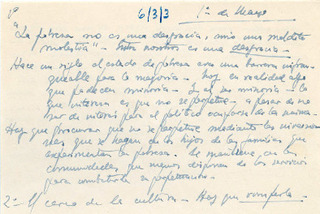 1º 6/3/3 1º de Mayo
"La pobreza no es una desgracia, sino una maldita
molestia" - Entre nosotros es una desgracia.
Hace un siglo el estado de pobreza era una barrera infran-
queable para la mayoría - hoy en realidad algo
que padecen minorías. Y el ser minoría - lo
que interesa es que no se perpetúe, a pesar de no
ser de interés para el político ocuparse de las mismas.
Hay que procurar que no se perpetúe mediante las inversiones
que se hagan de los hijos de las familias que
experimentan la pobreza. Se mantiene en las
comunidades que menos disponen de los servicios
para combatirla es perpetuación.
2º El cerco de la cultura - Hay que romperlo.